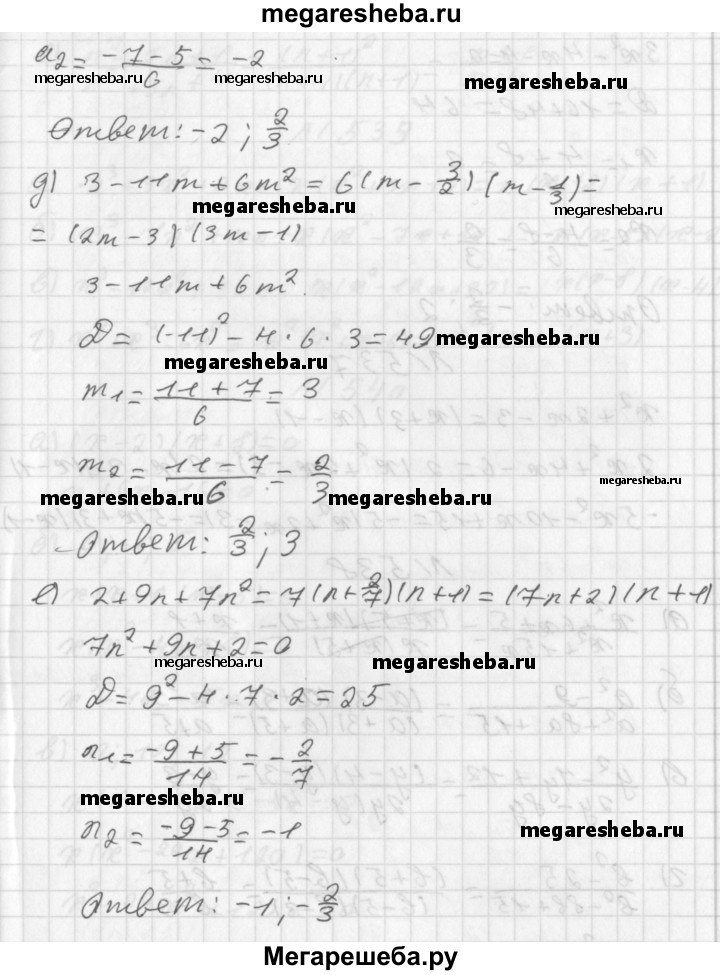 megaresheba.ru
a₂ = (-7-5)/6 = -2
megaresheba.ru megaresheba.ru megaresheba.ru
Ответ: -2; 2/3
д) 3-11m+6m² = 6(m - 3/2)(m - 1/3) =
megaresheba.ru megaresheba.ru
= (2m-3)(3m-1)
3-11m+6m².
D = (-11)² - 4·6·3 = 49
megaresheba.ru
megaresheba.ru
m₁ = (11+7)/6 = 3
m₂ = (11-7)/6 = 2/3
megaresheba.ru megaresheba.ru megaresheba.ru
Ответ: 2/3; 3
е) 2+9n+7n² = 7(n + 2/7)(n+1) = (7n+2)(n+1)
7n²+9n+2=0
megaresheba.ru megaresheba.ru
D = 9² - 4·7·2 = 25
n₁ = (-9+5)/14 = -2/7
megaresheba.ru
n₂ = (-9-5)/14 = -1
megaresheba.ru
Ответ: -1; -2/3
Мегарешеба.ру